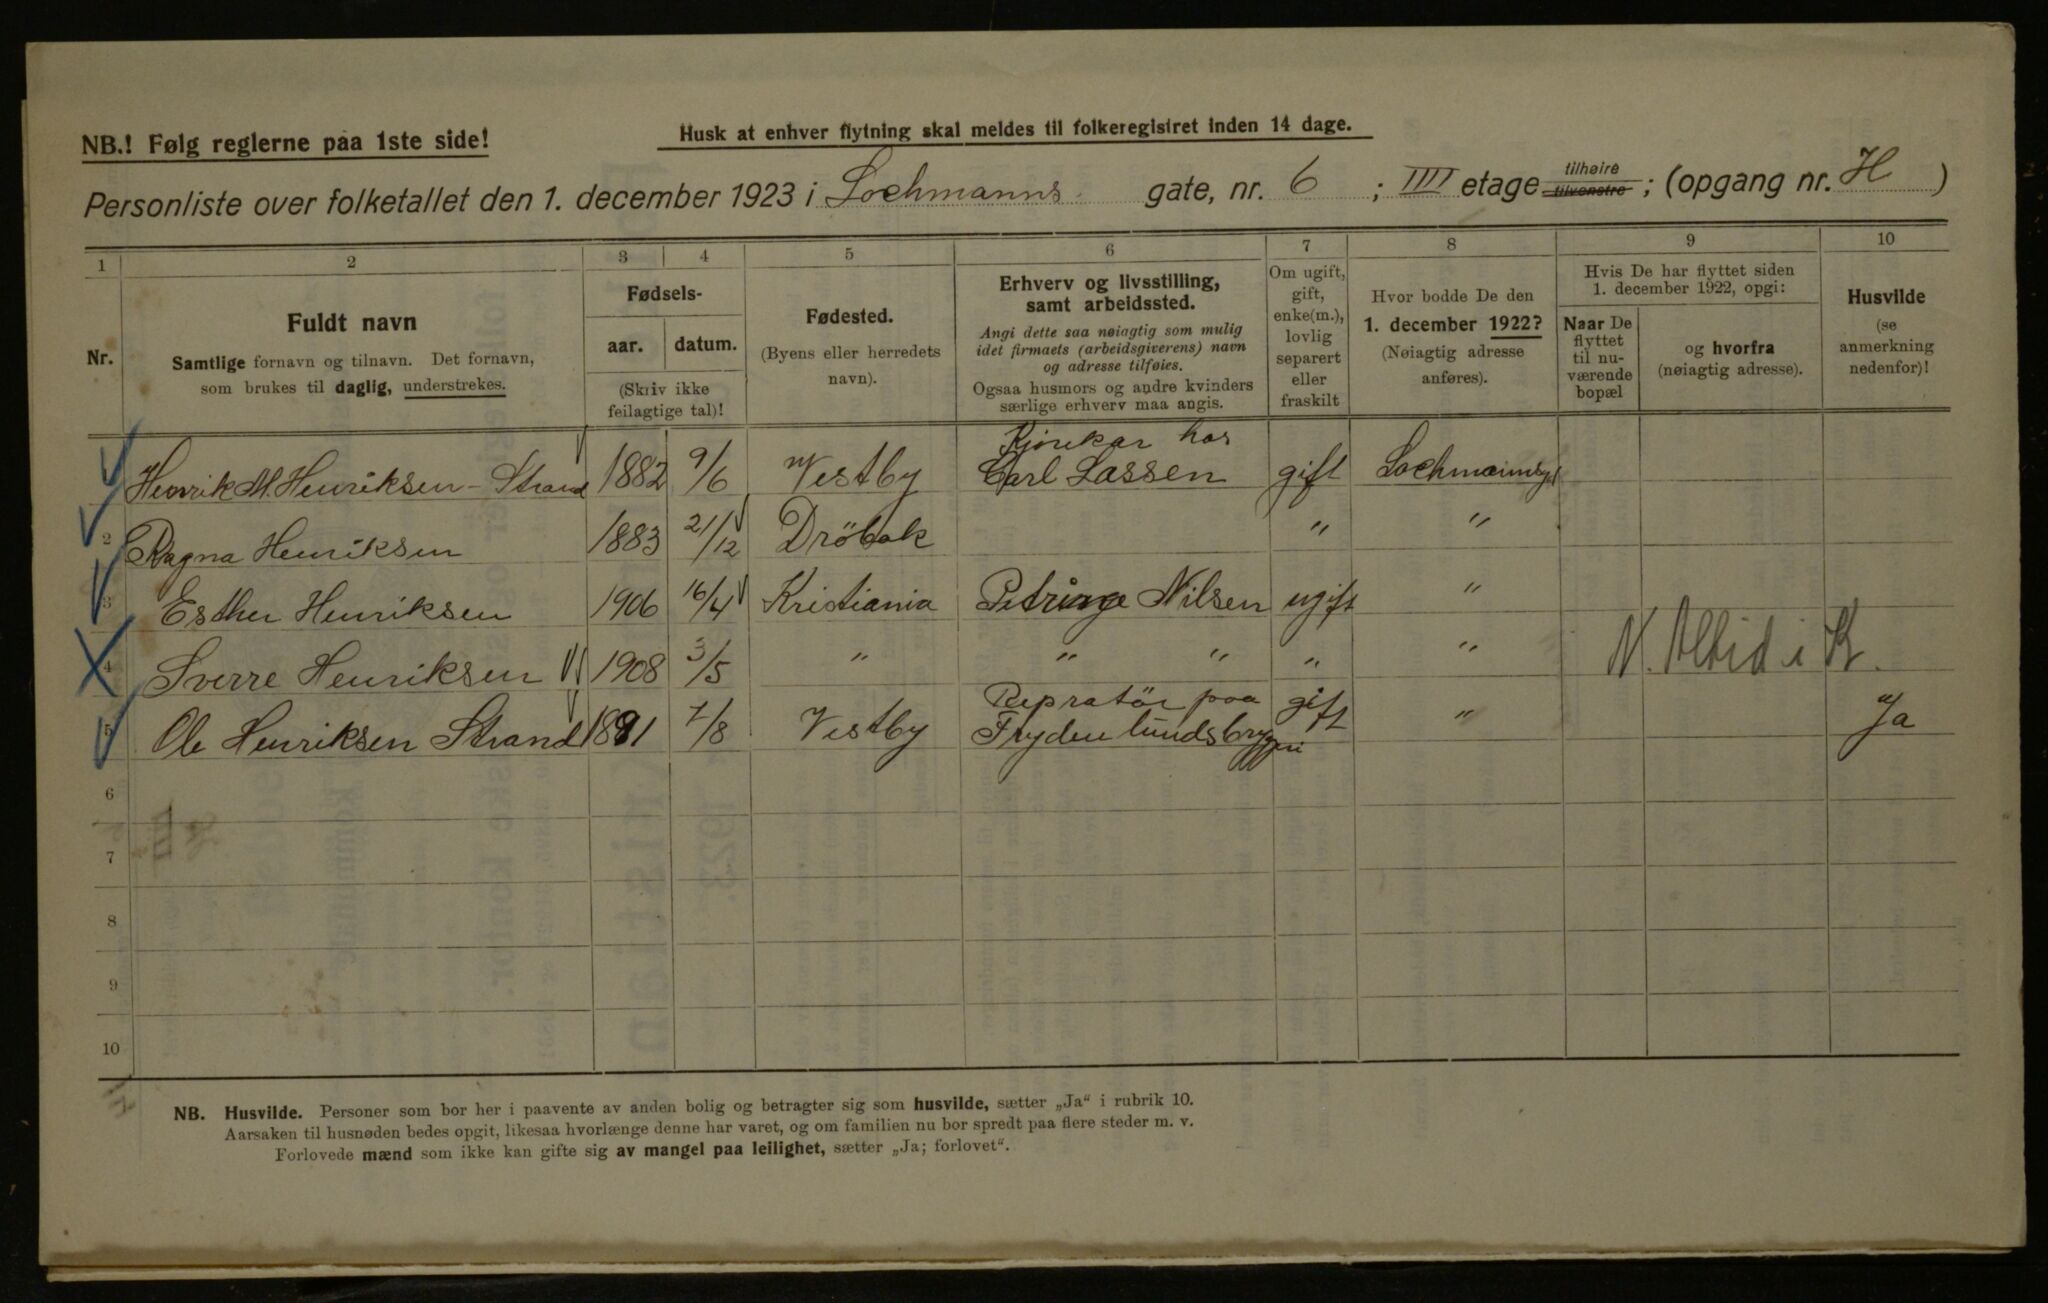 NB.! Følg reglerne paa 1ste side!
Husk at enhver flytning skal meldes til folkeregistret inden 14 dage.
Personliste over folketallet den 1. december 1923 i Lochmanns gate, nr. 6 ; IIII etage tilhøire tilvenstre ; (opgang nr. H )
1 2 3 4 5 6 7 8 9 10
Nr.
Fuldt navn
Samtlige fornavn og tilnavn. Det fornavn,
som brukes til daglig, understrekes.
Fødsels-
aar. datum.
(Skriv ikke
feilagtige tal)!
Fødested.
(Byens eller herredets
navn).
Erhverv og livsstilling,
samt arbeidssted.
Angi dette saa nøiagtig som mulig
idet firmaets (arbeidsgiverens) navn
og adresse tilføies.
Ogsaa husmors og andre kvinders
særlige erhverv maa angis.
Om ugift,
gift,
enke(m.),
lovlig
separert
eller
fraskilt
Hvor bodde De den
1. december 1922?
(Nøiagtig adresse
anføres).
Hvis De har flyttet siden
1. december 1922, opgi:
Naar De
flyttet
til nu-
værende
bopæl
og hvorfra
(nøiagtig adresse).
Husvilde
(se
anmerkning
nedenfor)!
Kjørekar hos
Henrik M. Henriksen - Strand 1882 9/6 Vestby Carl Lassen gift Lochmannsgt
2 Ragna Henriksen 1883 21/12 Dröbak " "
3 Esther Henriksen 1906 16/4 Kristiania Nilsen ugift "
4 Sverre Henriksen 1908 3/5 " " " " " N. Altid i K.
Repratör paa
5 Ole Henriksen Strand 1881 7/8 Vestby Frydenlundsbryggeri gift " Ja
6
7
8
9
10
NB. Husvilde. Personer som bor her i paavente av anden bolig og betragter sig som husvilde, sætter „Ja“ i rubrik 10.
Aarsaken til husnøden bedes opgit, likesaa hvorlænge denne har varet, og om familien nu bor spredt paa flere steder m. v.
Forlovede mænd som ikke kan gifte sig av mangel paa leilighet, sætter „Ja; forlovet“.